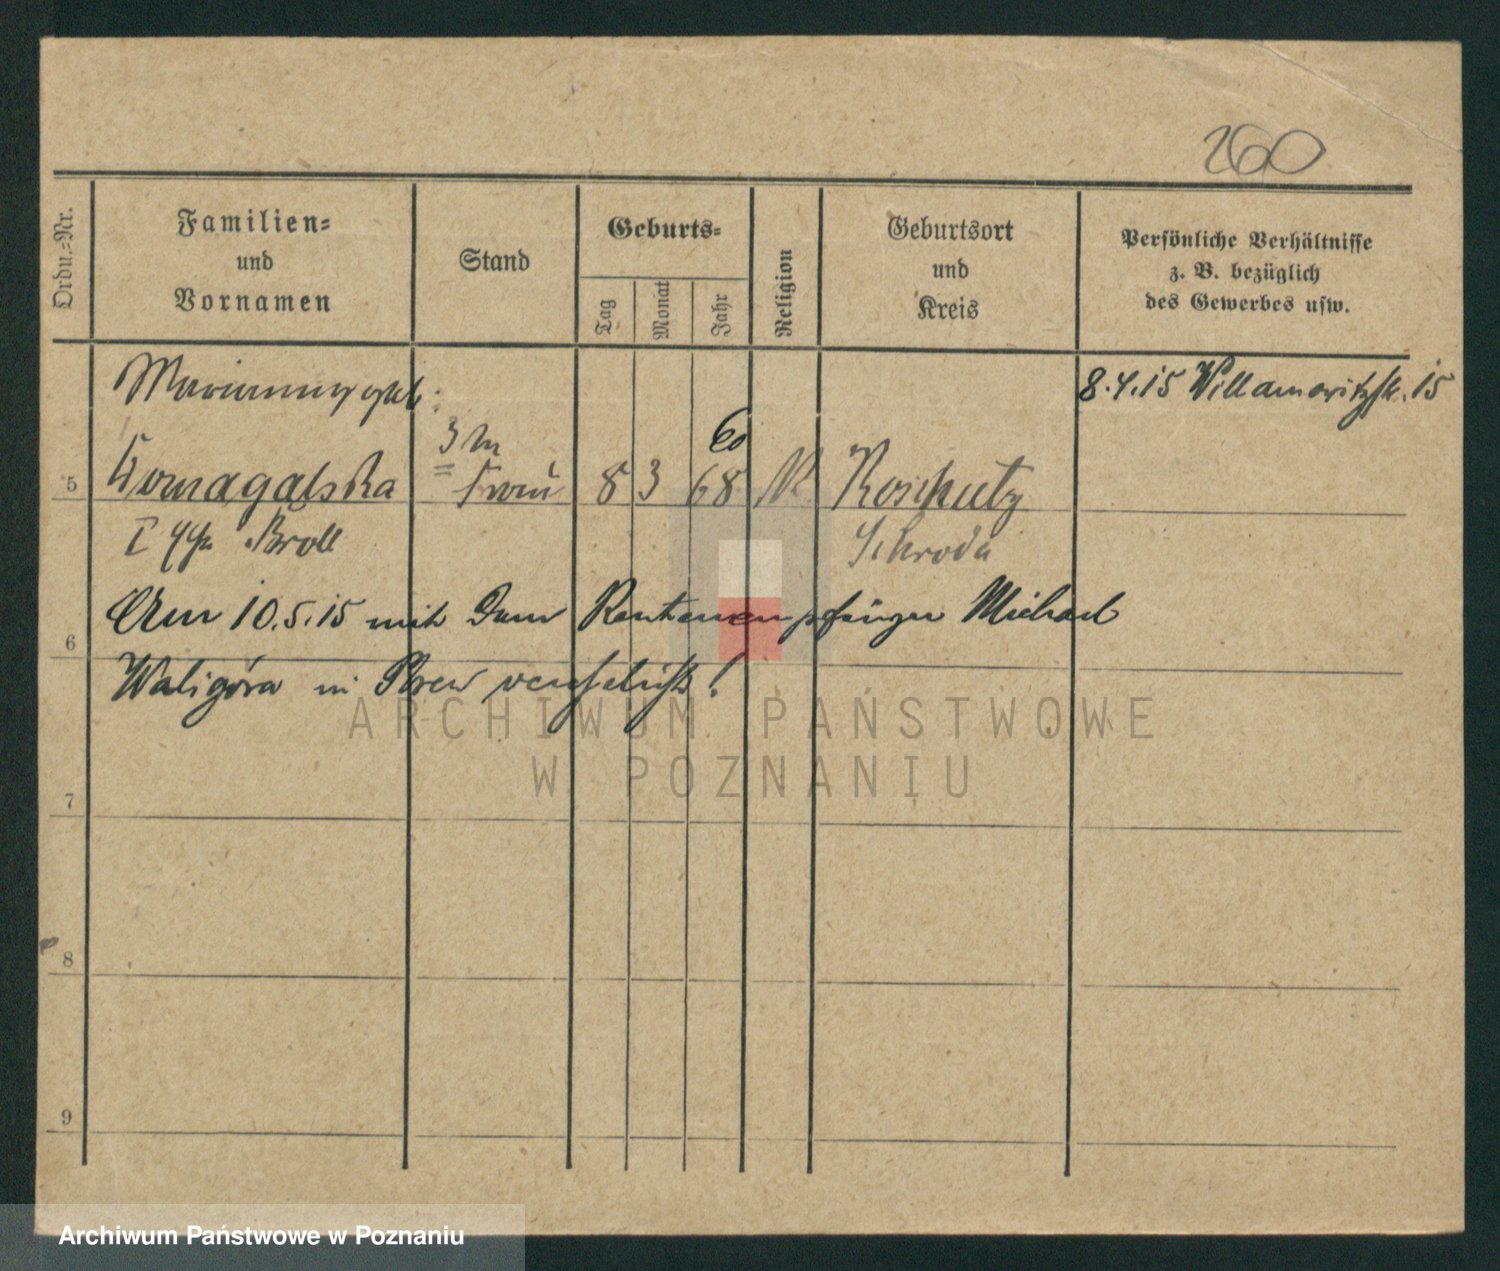 260
Ordn.=Nr.
Familien=
und
Vornamen
Stand
Geburts=
Tag
Monat
Jahr
Religion
Geburtsort
und
Kreis
Persönliche Verhältnisse
z. B. bezüglich
des Gewerbes usw.
Marianna geb:
8.4.15 Willamowitzstr. 15
60
5 8 3 68 K Koschutz
Broll Schroda
Am 10.5.15 mit dem Rentenempfänger Michael
6
Waligóra in Posen verehelicht!
7
8
9
ARCHIWUM PAŃSTWOWE
W POZNANIU
Archiwum Państwowe w Poznaniu